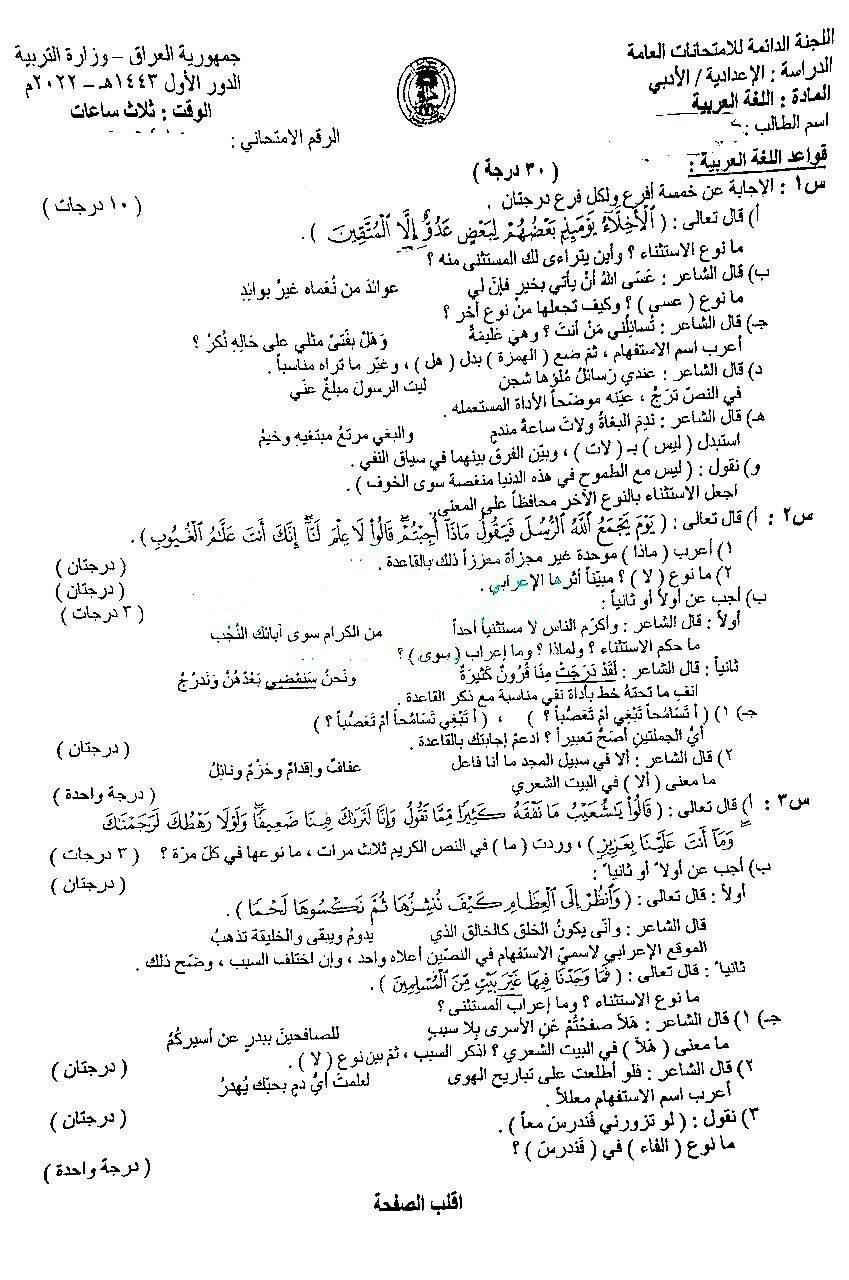 اللجنة الدائمة للامتحانات العامة
الدراسة : الإعدادية / الأدبي
المادة : اللغة العربية
اسم الطالب :
جمهورية العراق – وزارة التربية
الدور الأول ١٤٤٣هـ – ٢٠٢٢م
الوقت : ثلاث ساعات
الرقم الامتحاني :
قواعد اللغة العربية : ( ٣٠ درجة )
س١ : الإجابة عن خمسة أفرع ولكل فرع درجتان . ( ١٠ درجات )
أ) قال تعالى : ( ٱلْأَخِلَّآءُ يَوْمَئِذٍۭ بَعْضُهُمْ لِبَعْضٍ عَدُوٌّ إِلَّا ٱلْمُتَّقِينَ ) .
ما نوع الاستثناء ؟ وأين يتراءى لك المستثنى منه ؟
ب) قال الشاعر : عَسَى اللهُ أنْ يأتي بخيرٍ فإنّ لي عوائدَ من نُعماه غيرُ بوائدِ
ما نوع ( عسى ) ؟ وكيف تجعلها من نوع آخر ؟
جـ) قال الشاعر : تُسائلُني مَنْ أنتَ ؟ وهيَ عَليمَةٌ وَهَلْ بفَتىً مثلي على حَالِهِ نُكرُ ؟
أعرب اسم الاستفهام ، ثم ضع ( الهمزة ) بدل ( هل ) ، وغيّر ما تراه مناسباً .
د) قال الشاعر : عندي رَسائلُ مُلؤها شجن ليت الرسولَ مبلغٌ عنّي
في النصّ تَرَجٍّ ، عيّنه موضحاً الأداة المستعمله .
هـ) قال الشاعر : نَدِمَ البغاةُ ولاتَ ساعةُ مندمٍ والبغي مرتعُ مبتغيهِ وخيمُ
استبدل ( ليس ) بـ ( لات ) ، وبيّن الفرق بينهما في سياق النفي .
و) نقول : ( ليس مع الطموح في هذه الدنيا منغصة سوى الخوف ) .
اجعل الاستثناء بالنوع الآخر محافظاً على المعنى.
س٢ : أ) قال تعالى : ( يَوْمَ يَجْمَعُ ٱللَّهُ ٱلرُّسُلَ فَيَقُولُ مَاذَآ أُجِبْتُمْ ۖ قَالُوا۟ لَا عِلْمَ لَنَآ ۖ إِنَّكَ أَنتَ عَلَّـٰمُ ٱلْغُيُوبِ ) .
١) أعرب ( ماذا ) موحدة غير مجزأة معززاً ذلك بالقاعدة . ( درجتان )
٢) ما نوع ( لا ) ؟ مبيّناً أثرها الإعرابي . ( درجتان )
ب) أجب عن أولاً أو ثانياً : ( ٣ درجات )
أولاً : قال الشاعر : وأكرَم الناس لا مستثنياً أحداً من الكرام سوى آبائك النُجْب
ما حكم الاستثناء ؟ ولماذا ؟ وما إعراب ( سوى ) ؟
ثانياً : قال الشاعر : لَقَدْ دَرَجَتْ مِنّا قُرُونٌ كَثيرَةٌ ونَحنُ سَنَمْضي بَعْدَهُنّ وَنَدرُجُ
انفِ ما تحتهُ خط بأداة نفي مناسبة مع ذكر القاعدة .
جـ) ١) ( أ تَسَامُحاً تَبْغِي أمْ تَعَصُّباً ؟ ) ، ( أ تَبْغِي تَسَامُحاً أمْ تَعَصُّباً ؟ )
أيُّ الجملتين أصَحُّ تعبيراً ؟ ادعمْ إجابتك بالقاعدة . ( درجتان )
٢) قال الشاعر : ألا في سبيل المجد ما أنا فاعل عفافٌ وإقدامٌ وحَزْمٌ ونائلُ
ما معنى ( ألا ) في البيت الشعري ( درجة واحدة )
س٣ : أ) قال تعالى : ( قَالُوا۟ يَـٰشُعَيْبُ مَا نَفْقَهُ كَثِيرًا مِّمَّا تَقُولُ وَإِنَّا لَنَرَىٰكَ فِينَا ضَعِيفًا ۖ وَلَوْلَا رَهْطُكَ لَرَجَمْنَـٰكَ ۖ
وَمَآ أَنتَ عَلَيْنَا بِعَزِيزٍ ) ، وردت ( ما ) في النص الكريم ثلاث مرات ، ما نوعها في كلّ مرّة ؟ ( ٣ درجات )
ب) أجب عن أولاً أو ثانياً : ( درجتان )
أولاً : قال تعالى : ( وَٱنظُرْ إِلَى ٱلْعِظَامِ كَيْفَ نُنشِزُهَا ثُمَّ نَكْسُوهَا لَحْمًا ) .
قال الشاعر : وأنّى يكونُ الخلق كالخالق الذي يدومُ ويبقى والخليقة تذهبُ
الموقع الإعرابي لاسميّ الاستفهام في النصّين أعلاه واحد ، وإن اختلف السبب ، وضّح ذلك .
ثانياً : قال تعالى : ( فَمَا وَجَدْنَا فِيهَا غَيْرَ بَيْتٍ مِّنَ ٱلْمُسْلِمِينَ ) .
ما نوع الاستثناء ؟ وما إعراب المستثنى ؟
جـ) ١) قال الشاعر : هَلاّ صفحْتُمْ عَنِ الأسرى بِلا سببٍ للصافحينَ ببدرٍ عن أسيركُمُ
ما معنى ( هَلاّ ) في البيت الشعري ؟ اذكر السبب ، ثم بين نوع ( لا ) . ( درجتان )
٢) قال الشاعر : فلو أطلعت على تباريح الهوى لعلمتَ أيُّ دمٍ بحبّك يُهدرُ
أعرب اسم الاستفهام معللاً . ( درجتان )
٣) نقول : ( لو تزورني فندرسَ معاً ) .
ما نوع ( الفاء ) في ( فَندرسَ ) ؟ ( درجة واحدة )
اقلب الصفحة